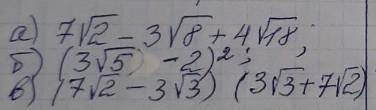 а) 7√2 - 3√8 + 4√18;
б) (3√5 - 2)²;
в) (7√2 - 3√3) (3√3 + 7√2)